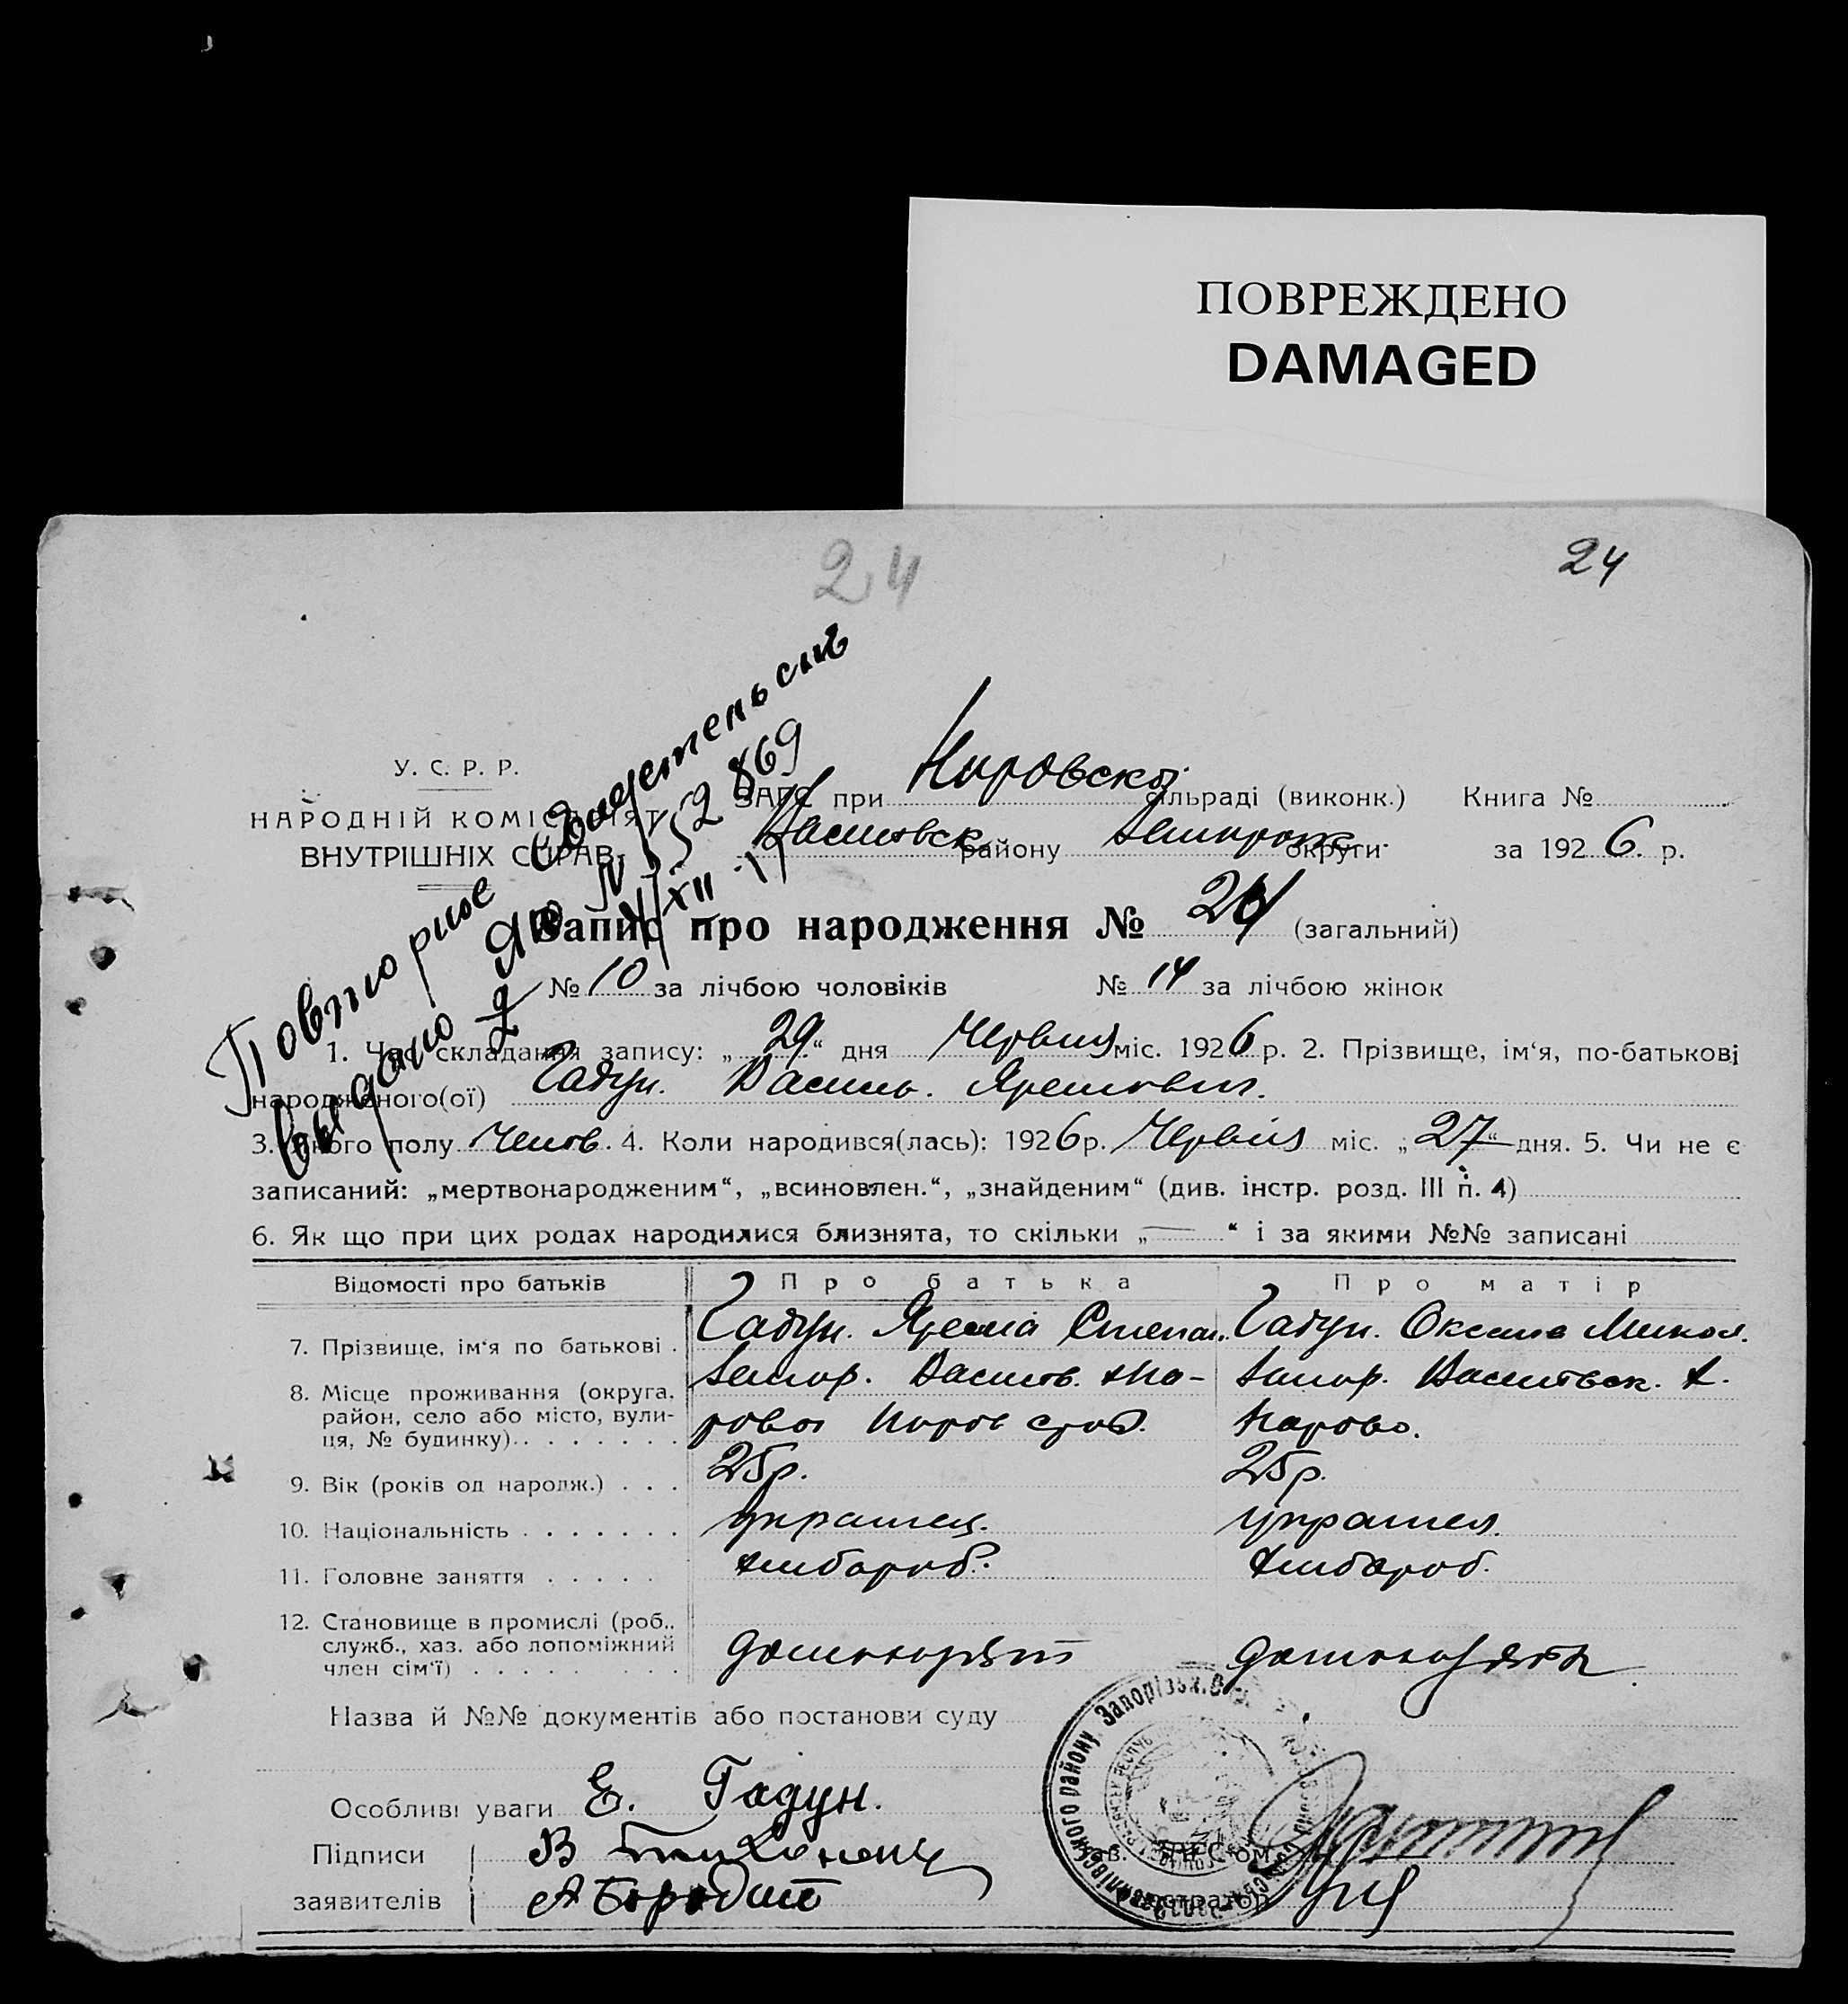 ПОВРЕЖДЕНО
DAMAGED
24
24
Повторное свидетельств
выдано ЯЮ № 552869
У. С. Р. Р.
НАРОДНІЙ КОМІСАРІЯТ
ВНУТРІШНІХ СПРАВ.
ЗАГС при сільраді (виконк.) Книга №
району округи за 1926 р.
Запис про народження № 24 (загальний)
№ 10 за лічбою чоловіків № 14 за лічбою жінок
1. Час складання запису: „29“ дня Червня міс. 1926 р. 2. Прізвище, ім‘я, по-батькові
народженого(ої) Гадун. Василь. Яремович.
3. Якого полу Чолов. 4. Коли народився(лась): 1926 р. Червня міс. „27“ дня. 5. Чи не є
записаний: „мертвонародженим“, „всиновлен.“, „знайденим“ (див. інстр. розд. III п. 4)
6. Як що при цих родах народилися близнята, то скільки „—“ і за якими №№ записані
Відомості про батьків Про батька Про матір
7. Прізвище, ім‘я по батькові . Гадун. Ярема Степан. Гадун. Оксана Микол.
8. Місце проживання (округа, Запор. Василів. Запор. Васильвск.
район, село або місто, вули-
ця, № будинку)
9. Вік (років од народж.) . . . 25 р. 25 р.
10. Національність . . . . . . . українец. українец.
11. Головне заняття . . . . . хлібороб. хлібороб.
12. Становище в промислі (роб.,
служб., хаз. або допоміжний
член сім‘ї) . . . . . . . . .
Назва й №№ документів або постанови суду
Особливі уваги Е. Гадун.
Підписи В Тихонень
заявителів А Бородин
Зав. ЗАГС‘ом
Реєстратор